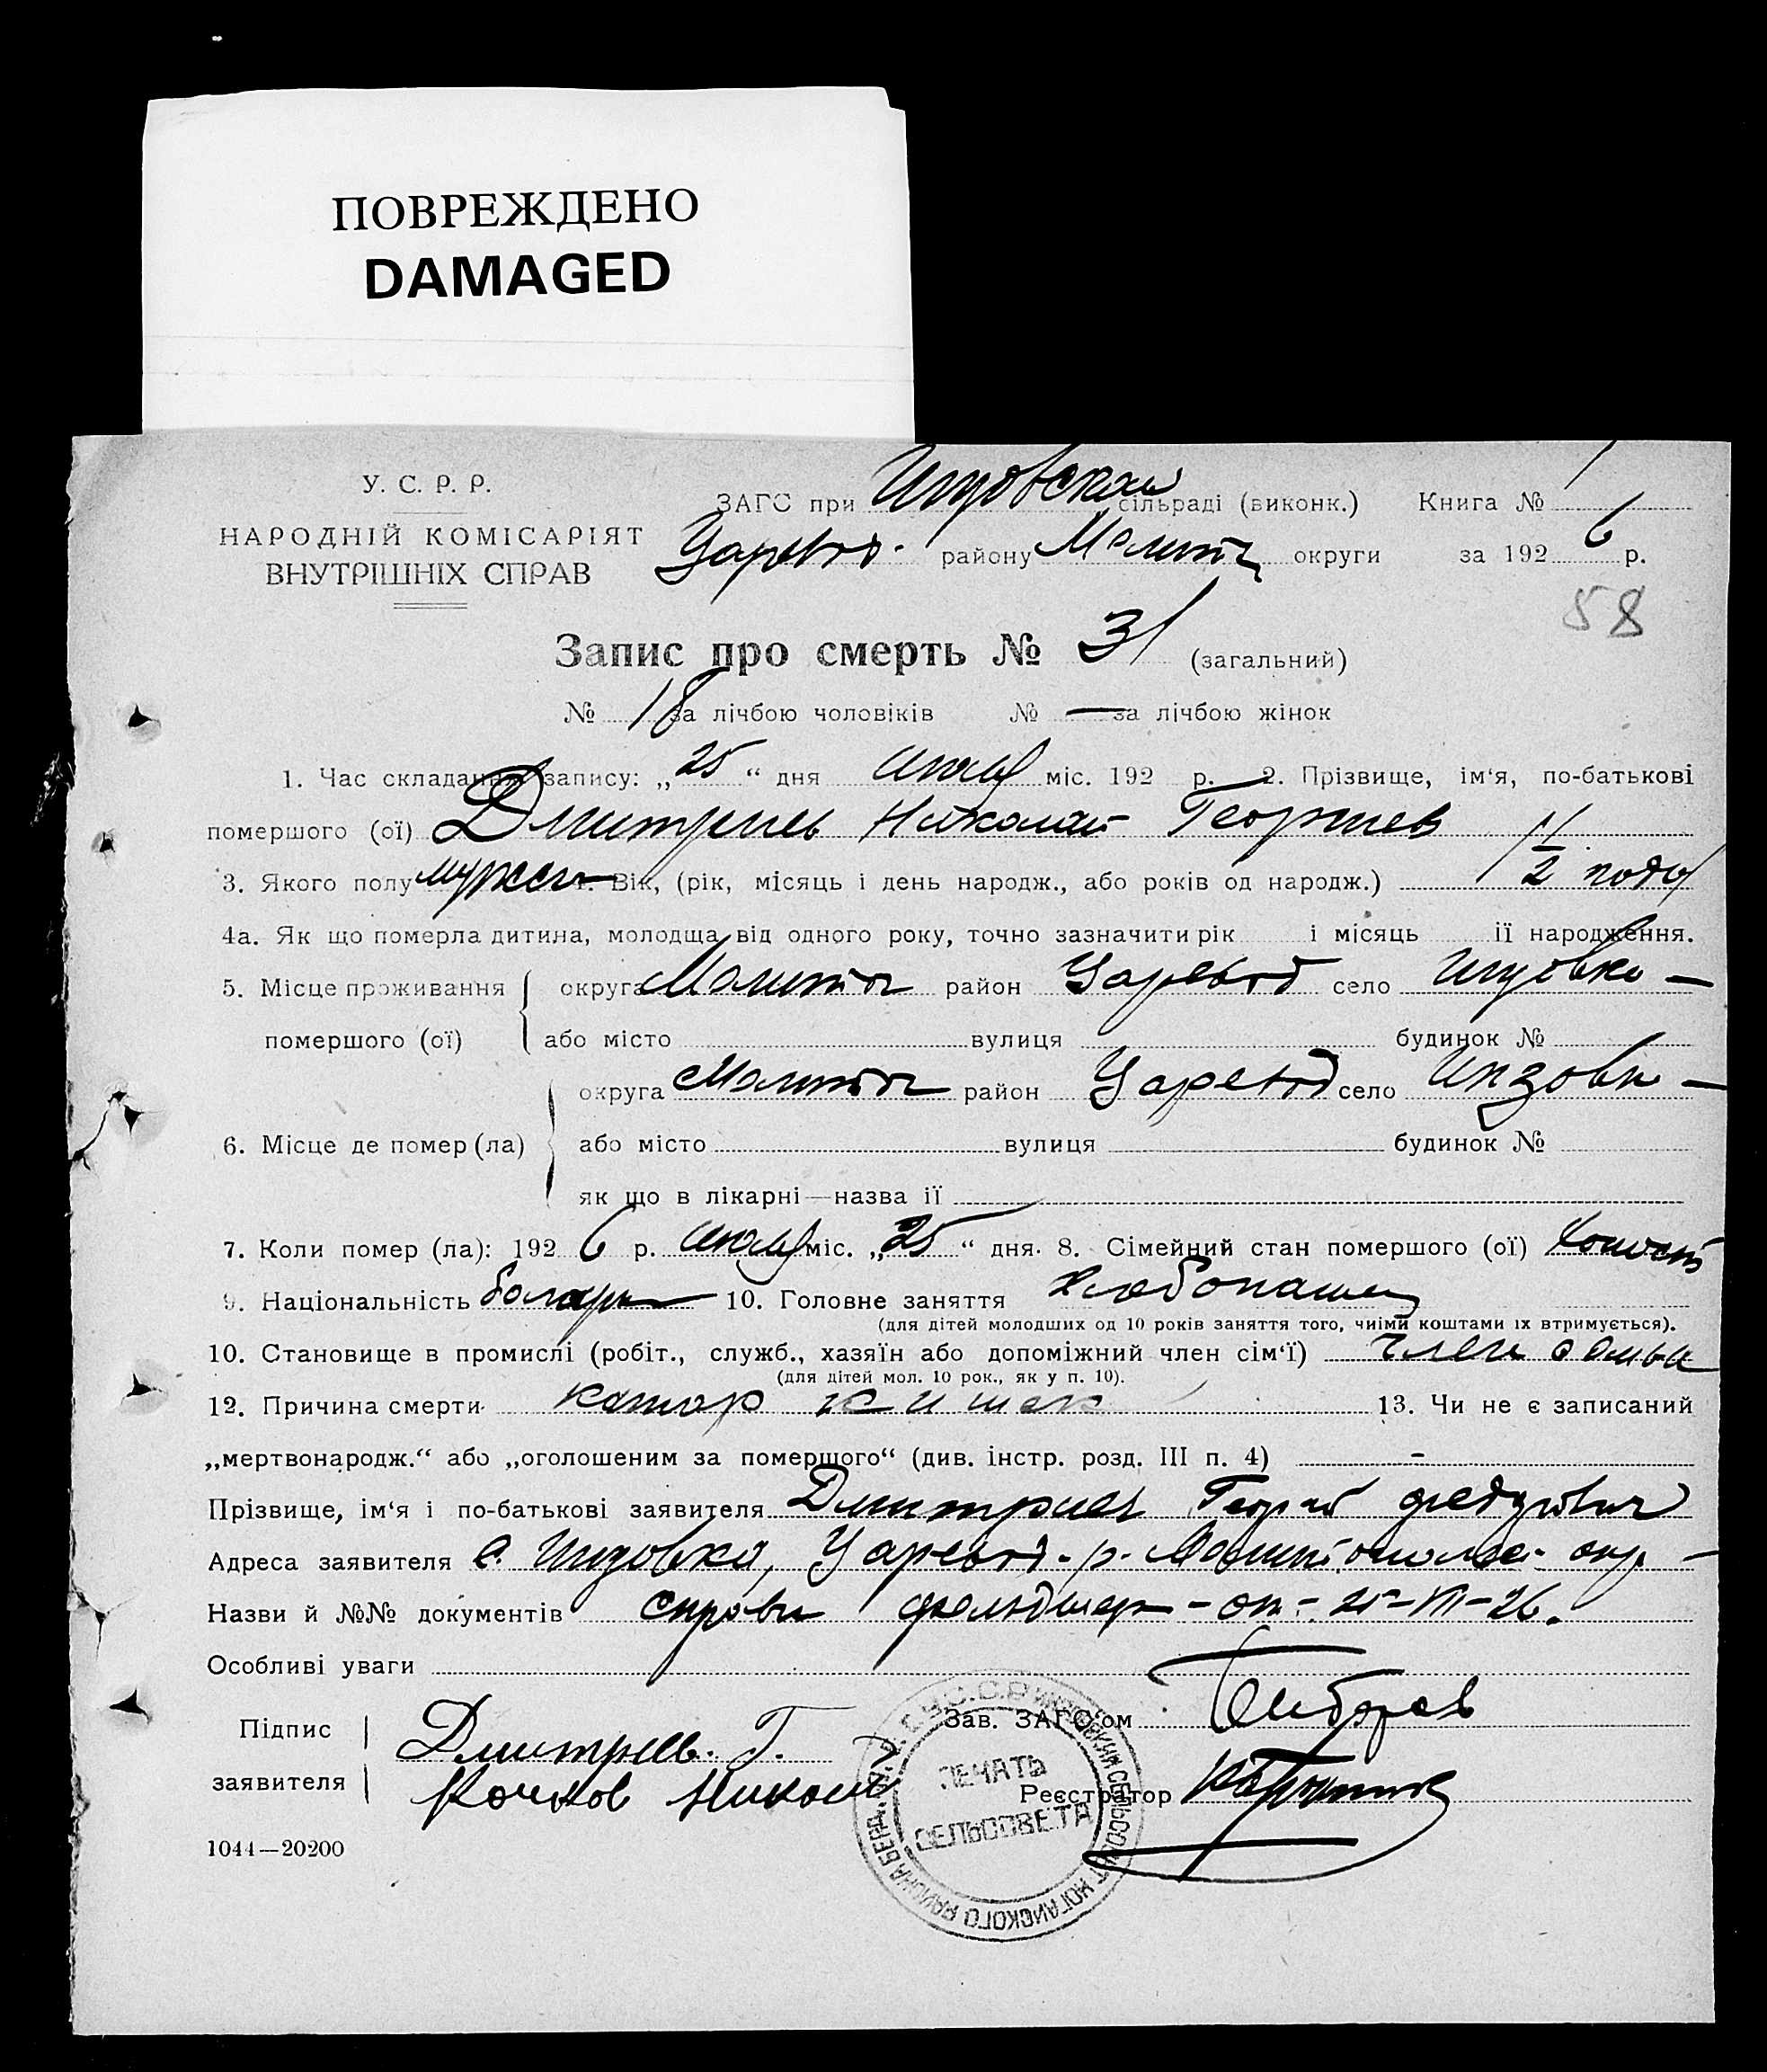 ПОВРЕЖДЕНО
DAMAGED
У. С. Р. Р.
НАРОДНІЙ КОМІСАРІЯТ
ВНУТРІШНІХ СПРАВ
ЗАГС при Инзовской сільраді (виконк.) Книга № 1
Царевод. району Мелитоп округи за 1926 р.
58
Запис про смерть № 31 (загальний)
№ 18 за лічбою чоловіків № — за лічбою жінок
1. Час складання запису: „25“ дня июля міс. 192 р. 2. Прізвище, ім‘я, по-батькові
помершого (ої) Дмитриев Николай Георгиев
3. Якого полу мужск 4. Вік, (рік, місяць і день народж., або років од народж.) 1 1/2 года
4а. Як що померла дитина, молодща від одного року, точно зазначити рік і місяць ії народження.
5. Місце проживання округа Мелитоп район Царевод село Инзовка —
помершого (ої) або місто вулиця будинок №
округа Мелитоп район Царевод село Инзовк —
6. Місце де помер (ла) або місто вулиця будинок №
як що в лікарні — назва ії
7. Коли помер (ла): 1926 р. июля міс. „25“ дня. 8. Сімейний стан помершого (ої) холост
9. Національність болгар 10. Головне заняття Хлебопашец
(для дітей молодших од 10 років заняття того, чиіми коштами іх втримується).
10. Становище в промислі (робіт., служб., хазяїн або допоміжний член сім‘ї) член семьи
(для дітей мол. 10 рок., як у п. 10).
12. Причина смерти катар кишек 13. Чи не є записаний
„мертвонародж.“ або „оголошеним за помершого“ (див. інстр. розд. III п. 4) -
Прізвище, ім‘я і по-батькові заявителя Дмитриев Георгий Федорович
Адреса заявителя с. Инзовка, Царевод. р. Мелитопольск. окр —
Назви й №№ документів справк фельдшер - от -
Особливі уваги
Підпис Дмитриев. Г. Зав. ЗАГС‘ом
заявителя Николай Реєстратор
ПЕЧАТЬ
СЕЛЬСОВЕТА
1044—20200